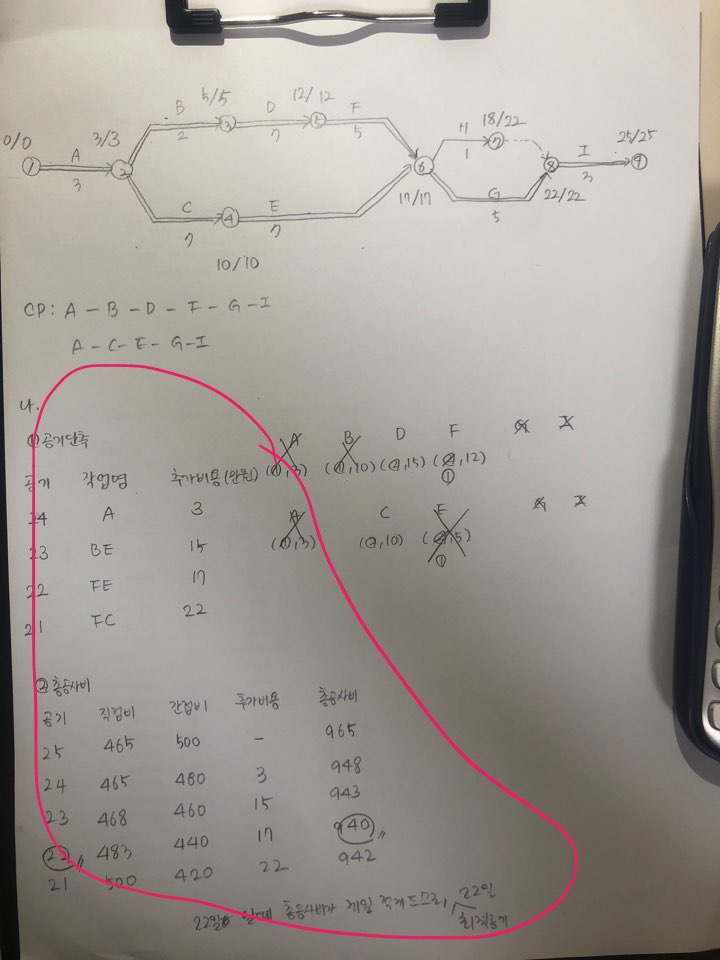 B 5/5 D 12/12 F H 18/22 25/25
0/0 3/3 ③ ⑤ ⑦ I
① A ② 2 7 5 ⑥ 1 ⑧ ⑨
3 3
C ④ E 17/17 G 22/22
7 7 5
10/10
CP: A - B - D - F - G - I
A - C - E - G - I
나.
①공기단축 A B D F G I
공기 작업명 추가비용(만원) (1,3) (1,10) (2,15) (2,12)
①
24 A 3 A C E G I
23 BE 15 (1,3) (2,10) (2,5)
①
22 FE 17
21 FC 22
②총공사비
공기 직접비 간접비 추가비용 총공사비
25 465 500 - 965
24 465 480 3 948
23 468 460 15 943
22 483 440 17 940
21 500 420 22 942
22일 일때 총공사비가 제일 적게드므로, 22일
최적공기